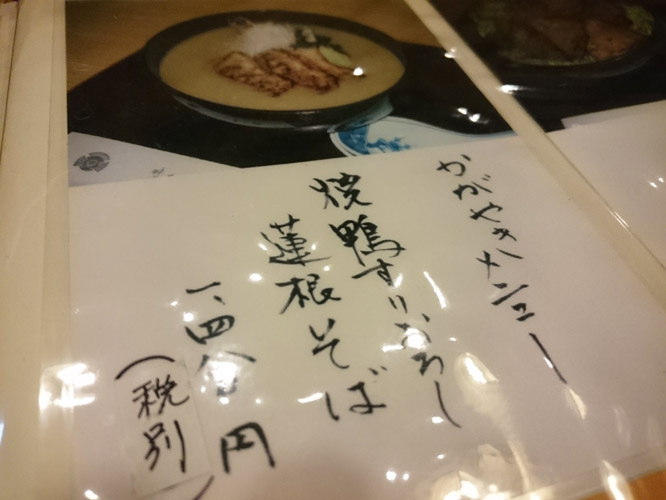 かがやきメニュー
焼鴨すりおろし
蓮根そば
円
(税別)